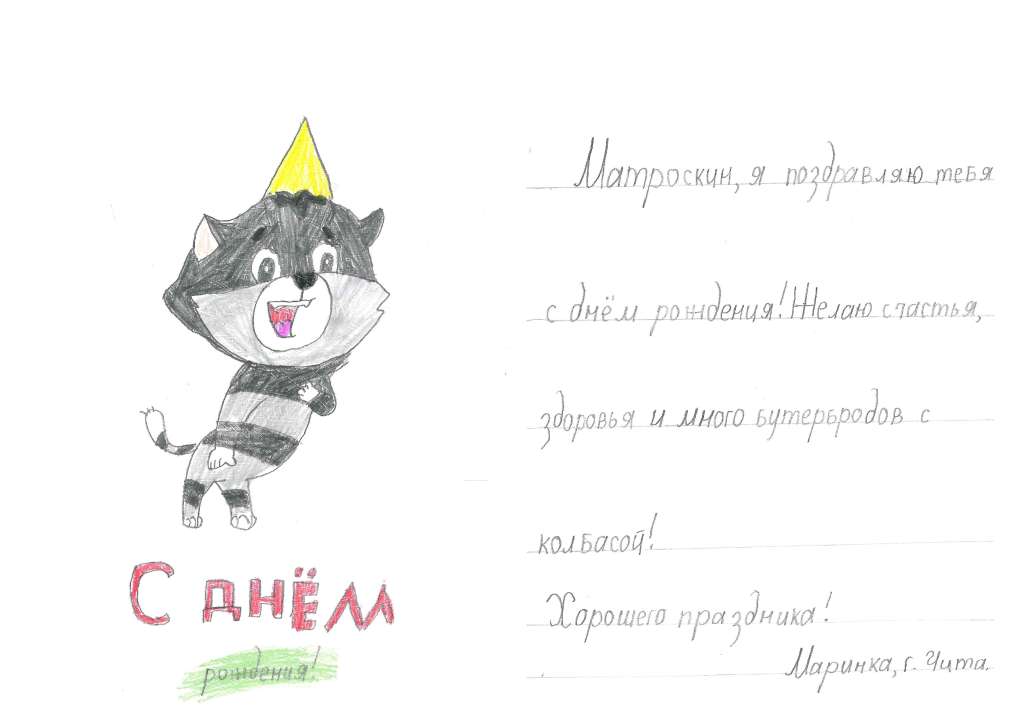 С днём
рождения!
Матроскин, я поздравляю тебя
с днём рождения! Желаю счастья,
здоровья и много бутербродов с
колбасой!
Хорошего праздника!
Маринка, г. Чита.